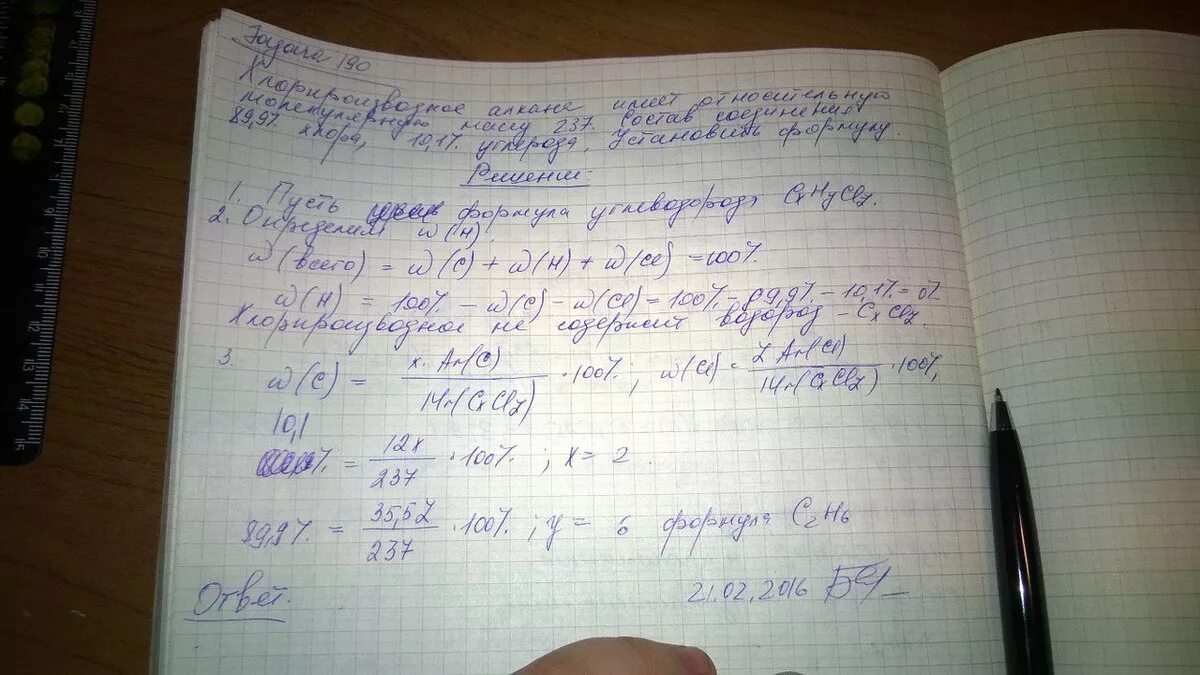 Задача 190
Хлорпроизводное алкана имеет относительную
молекулярную массу 237. Состав соединения
89,9% хлора, 10,1% углерода. Установить формулу.
Решение:
1. Пусть формула углеводорода CxHyClz.
2. Определим w(H).
w(всего) = w(C) + w(H) + w(Cl) = 100%.
w(H) = 100% - w(C) - w(Cl) = 100% - 89,9% - 10,1% = 0%
Хлорпроизводное не содержит водород - CxClz.
3. w(C) = x·Ar(C) / Mr(CxClz) · 100% ; w(Cl) = z Ar(Cl) / Mr(CxClz) · 100%,
10,1
% = 12x / 237 · 100% ; x = 2.
89,9% = 35,5z / 237 · 100% ; y = 6 формула C2H6
Ответ. 21.02.2016
12
13
14
15